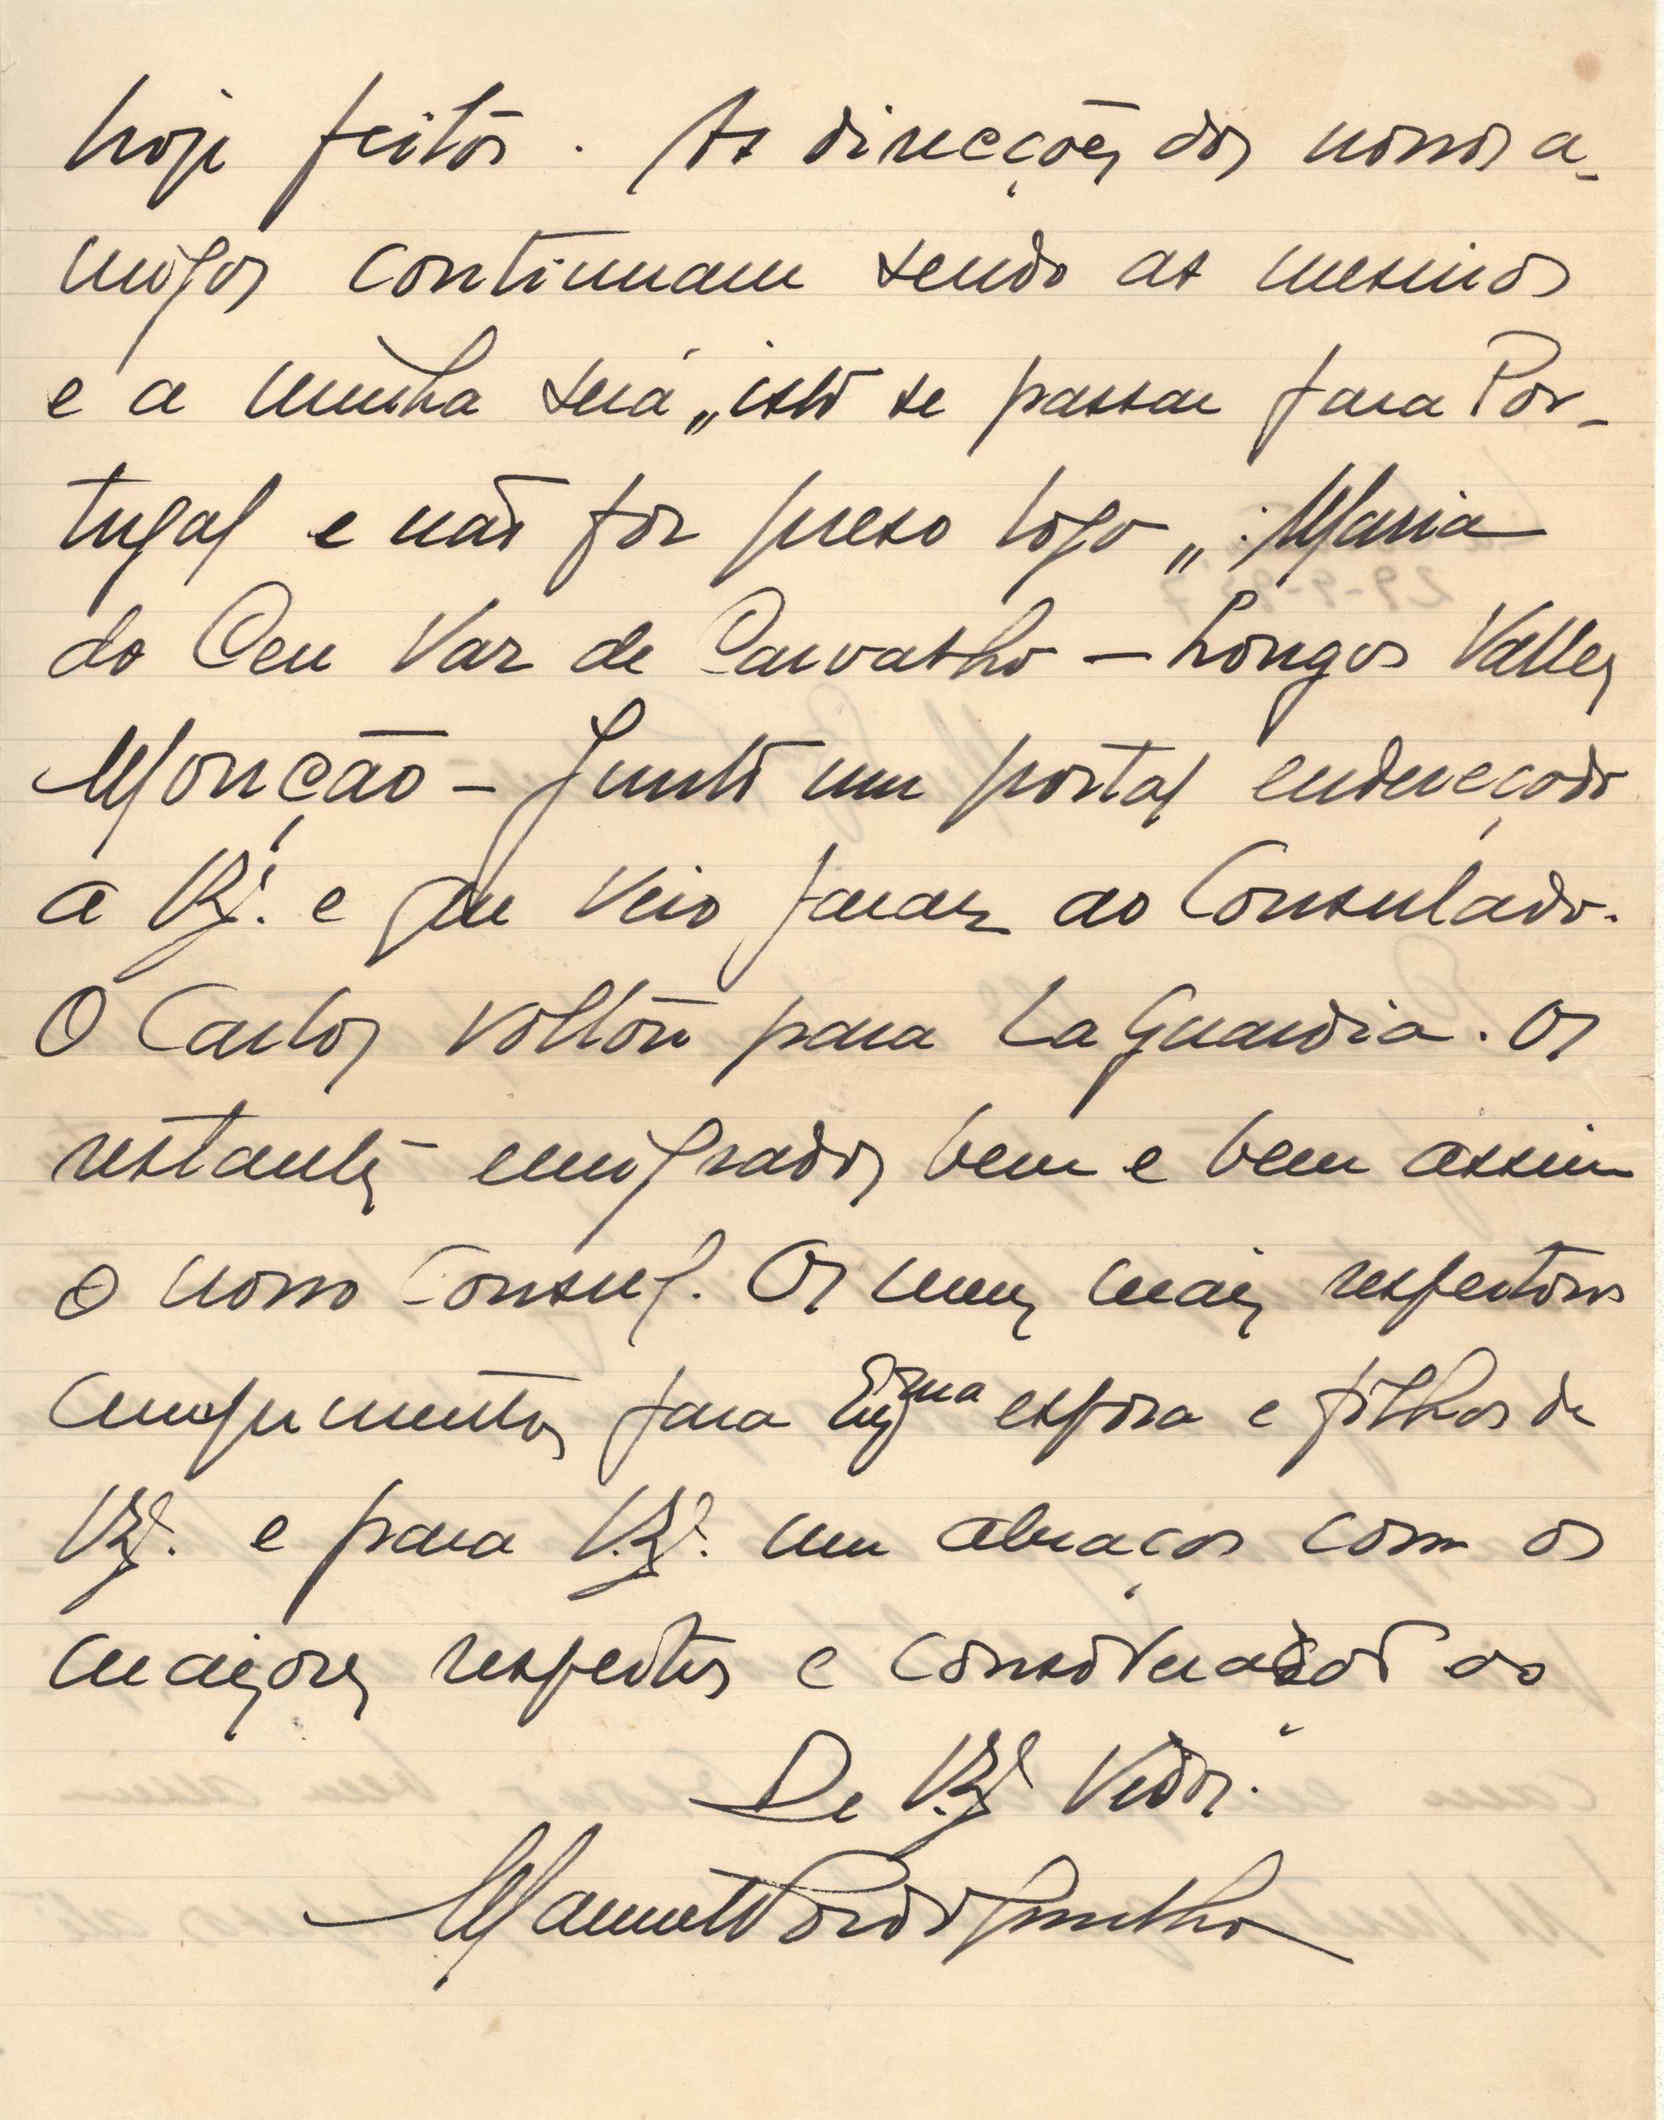 hoje feitos. As direcções dos nossos a-
migos continuam sendo as mesmas
e a minha será „isto se passar para Por-
tugal e não for preso logo„: Maria
do Ceu Vaz de Carvalho – Longos Valles
Monção – Junto um postal endereçado
a V. Exª. e que veio parar ao Consulado.
O Carlos voltou para La Guardia. Os
restantes emigrados bem e bem assim
o nosso Consul. Os meus mais respeitosos
cumprimentos para Exma esposa e filhos de
V. Exª. e para V. Exª. um abraços com os
maiores respeitos e consideração do
De V. Exª
Manuel